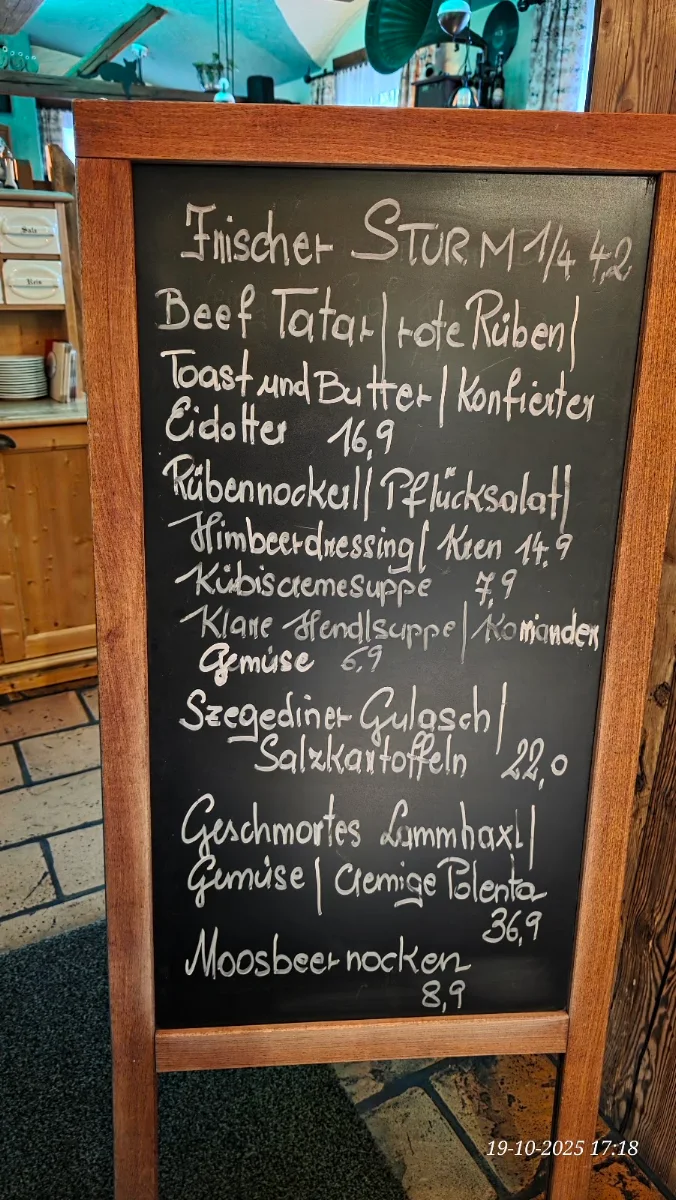 Frischer STURM 1/4 4,2
Beef Tatar | rote Rüben |
Toast und Butter | Konfierter
Eidotter 16,9
Rübennockerl | Pflücksalat |
Himbeerdressing | Kren 14,9
Kübiscremesuppe 7,9
Klare Hendlsuppe | Koriander
Gemüse 6,9
Szegediner Gulasch |
Salzkartoffeln 22,0
Geschmortes Lammhaxl |
Gemüse | Cremige Polenta
36,9
Moosbeernocken
8,9
Salz
Reis
19-10-2025 17:18